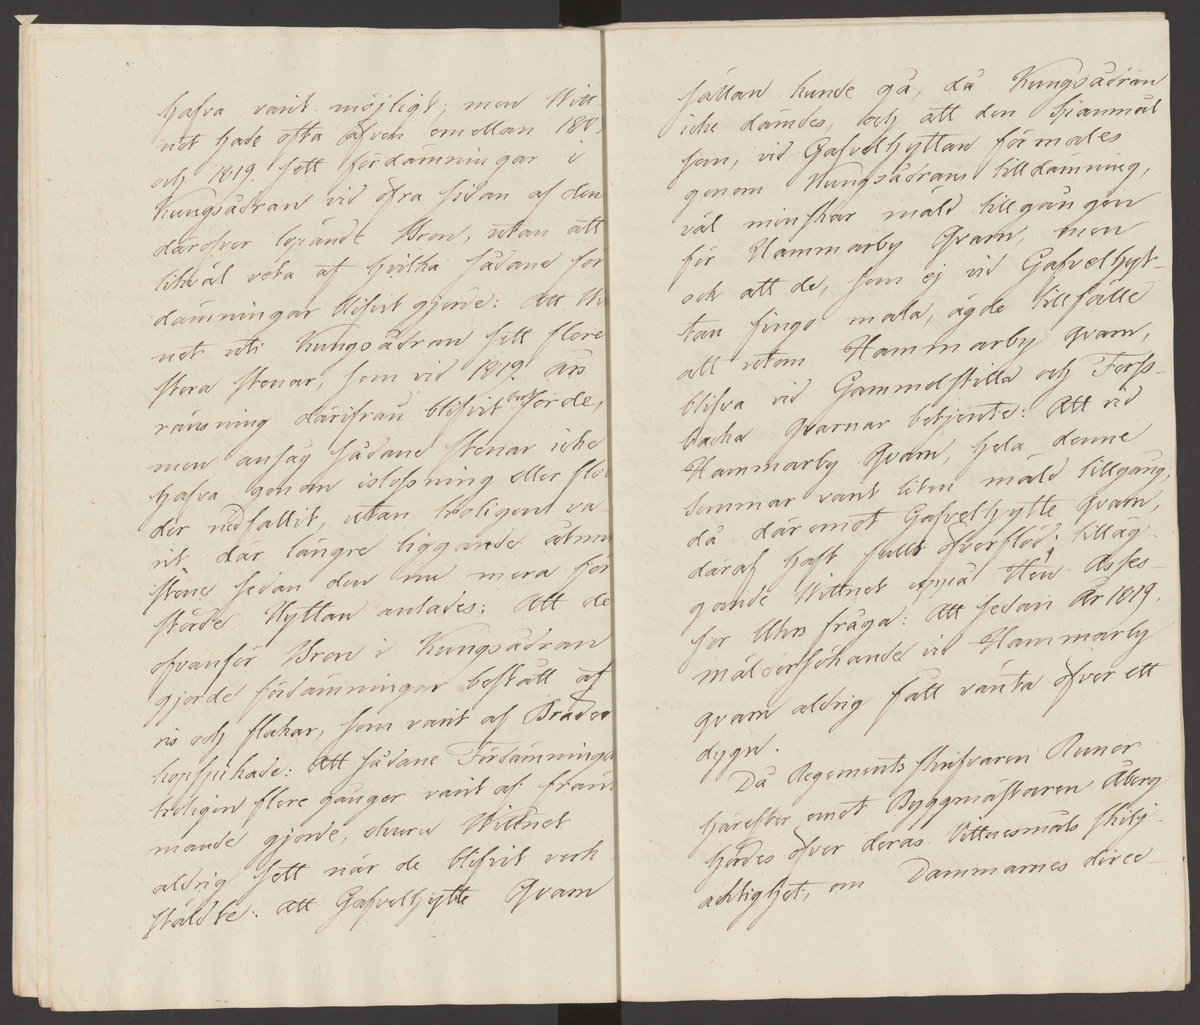 hafva varit möjligt; men Witt-
net hade ofta äfven emellan 180
och 1819. sett fördämningar i
Kungsådran vid öfra sidan af den
däröfver löpande Bron, utan att
likväl veta af hvilka sådane för
dämningar blifvit gjorde: Att Wi
net uti Kungsådran sett flere
stora stenar, som vid 1819. års
ränsning därifrån blifvit bortförde,
men ansåg sådane stenar icke
hafva genom islossning eller flo
der nedfallit, utan troligen va-
rit där längre liggande åtmin
stone sedan den nu mera för
störde Hyttan anlades: Att de
ofvanför Bron i Kungsådran
gjorde fördämningar bestått af
ris och flakar, som varit af Bräder
hopspikade: Att sådane Fördämninga
troligen flere gånger varit af främ
mande gjorde, ehuru Wittnet
aldrig sett när de blifvit verk-
ställdte: Att Gafvelhytte Qvarn
sällan kunde gå, då Kungsådran
icke dämdes, och att den hjonmäl
som, vid Gafvelhyttan förmales
genom Kungsådrans tilldämning,
väl minskar mäld tillgången
för Hammarby Qvarn, men
ock att de, som ej vid Gafvelhyt-
tan fingo mala, ägde tillfälle
att utom Hammarby qvarn,
blifva vid Gammelstilla och Forss-
backa Qvarnar betjente: Att vid
Hammarby Qvarn, hela denne
Sommar varit liten mäld tillgång,
då däremot Gafvelhytte Qvarn,
däraf haft fullt öfverflöd; tilläg-
gande Wittnet uppå Herr Asses-
sor Uhrs fråga: Att sedan år 1819.
mäldörsökande vid Hammarby
qvarn aldrig fått vänta öfver ett
dygn.
Då Regements skrifvaren Runer
härefter emot Byggmästaren Åberg
hördes öfver deras Vittnesmåls skilj-
acktighet, om Dammarnes direc-